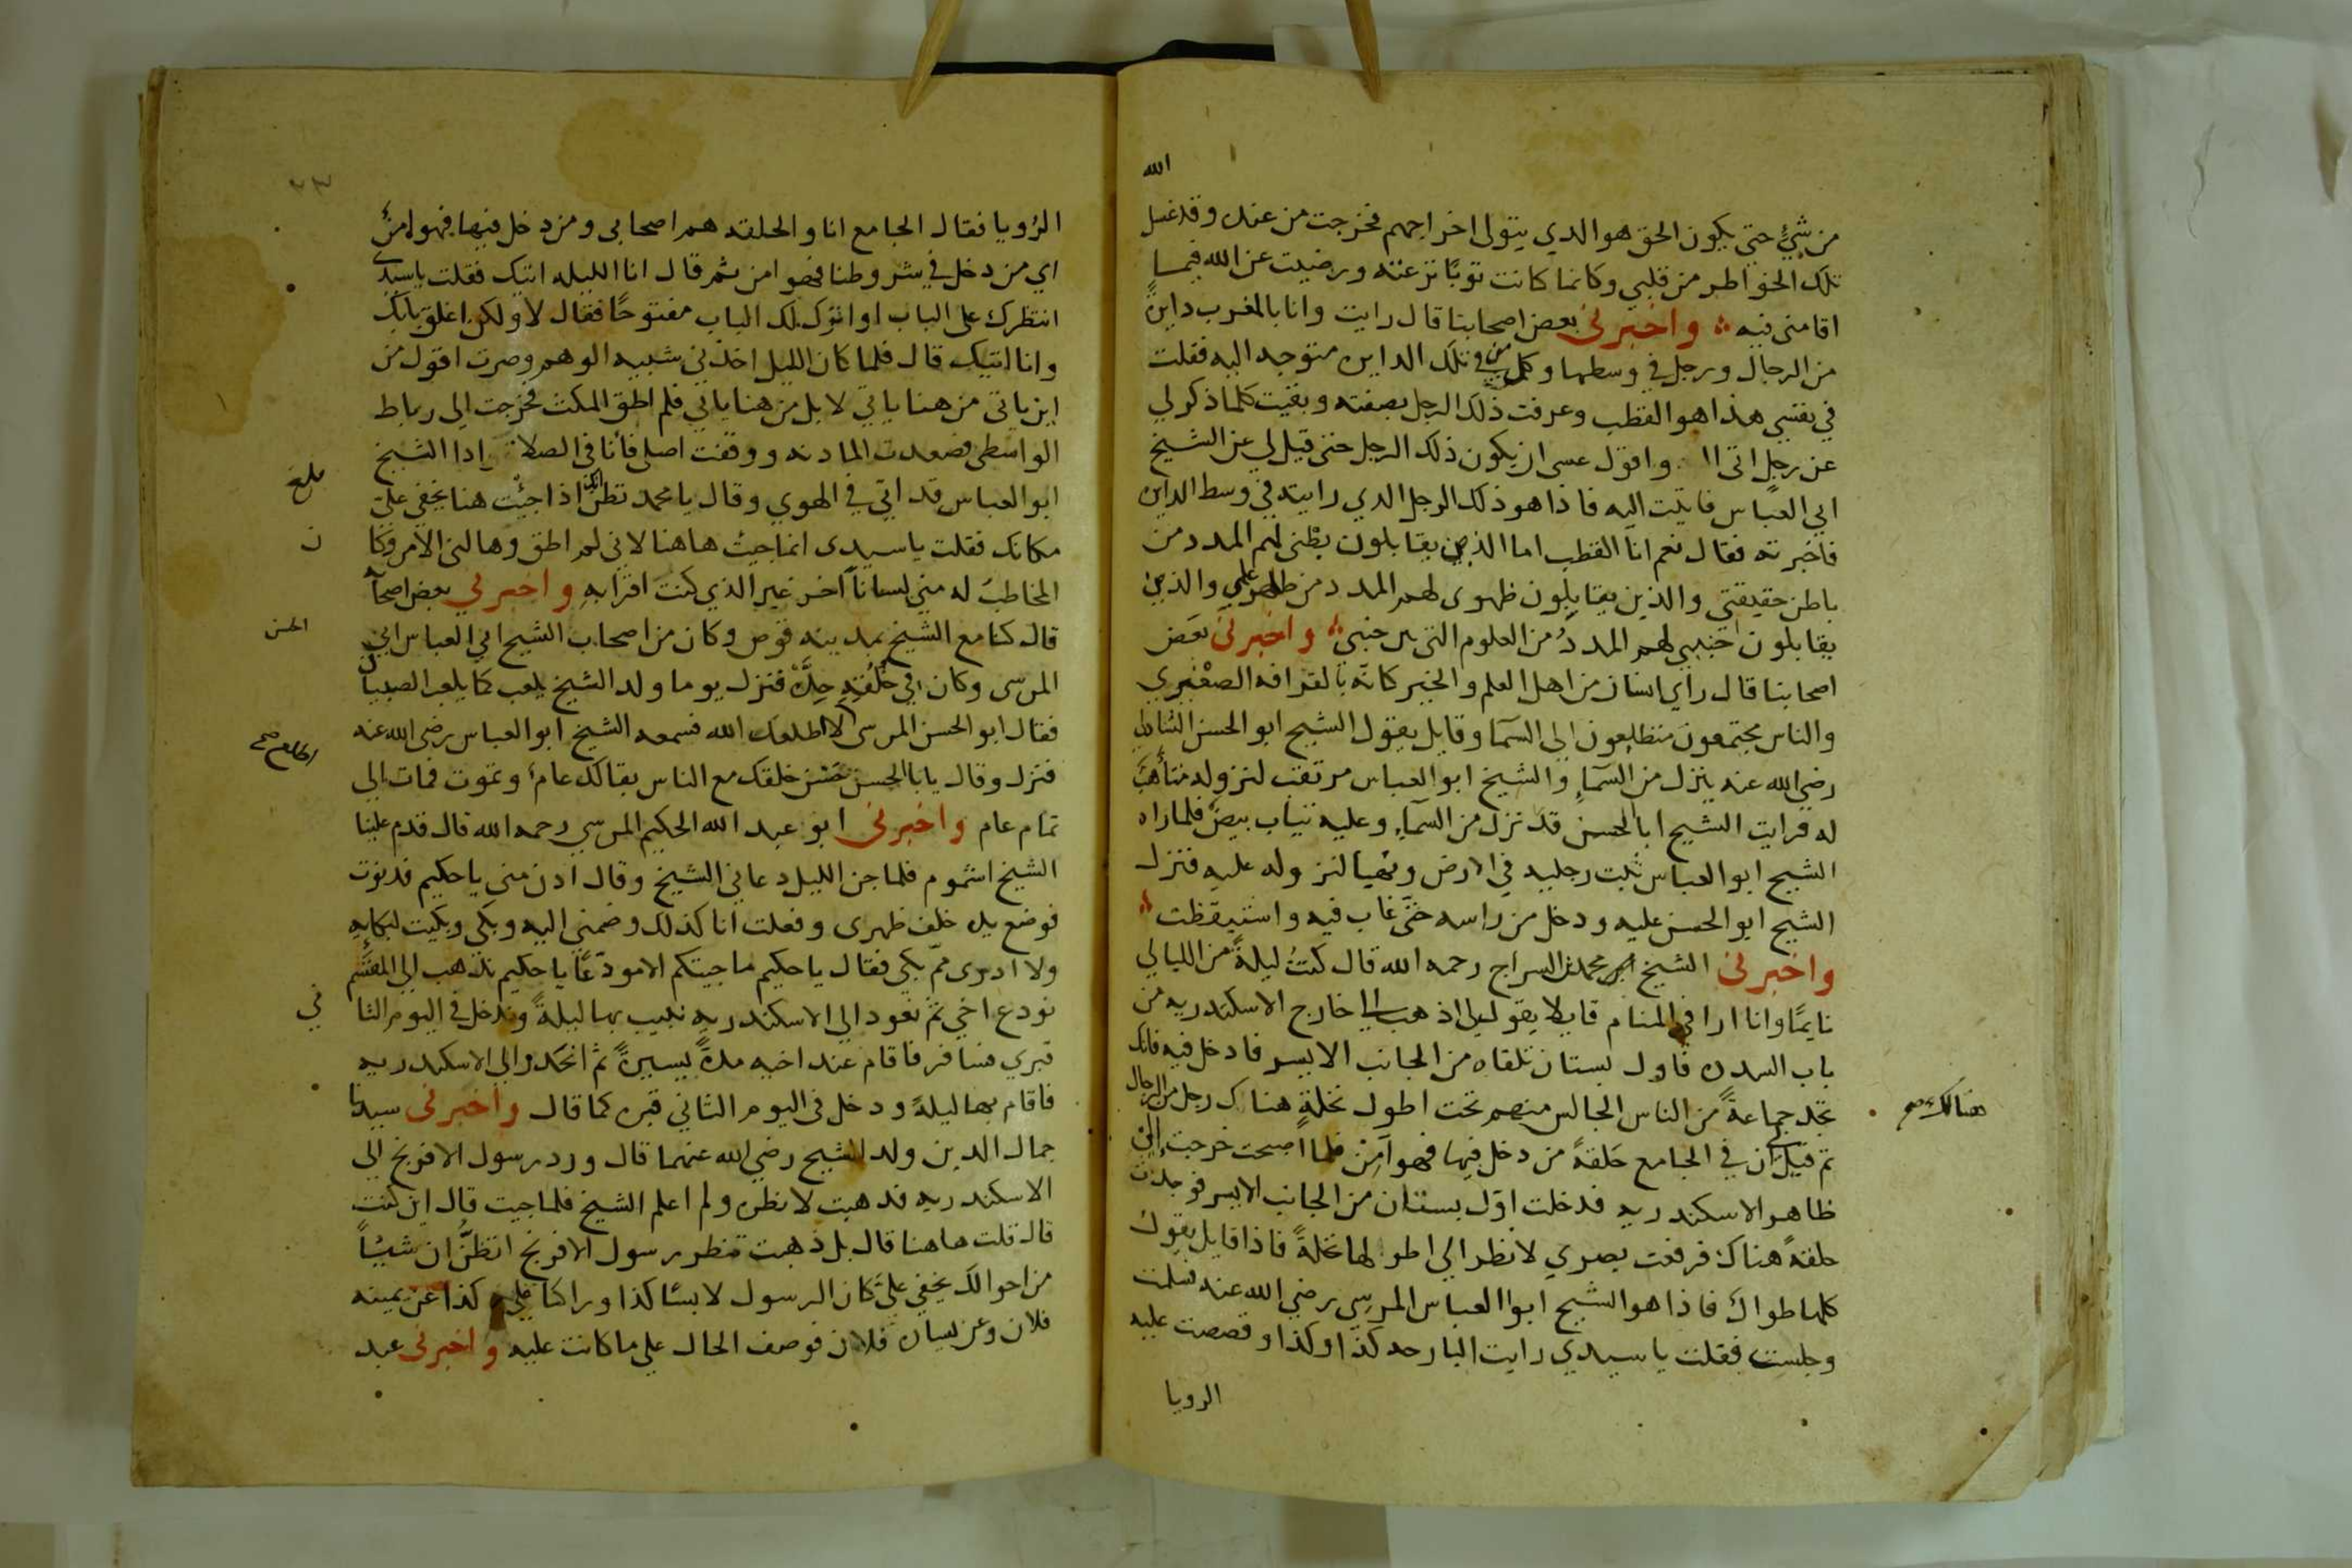 الله
من شيٍ حتى يكون الحق هو الدي يتولى اخراجهم فخرجت من عنده وقد غسل
تلك الخواطر من قلبي وكانما كانت ثوبًا نزعته ورضيت عن الله فيما
اقامني فيه واخبرني بعض اصحابنا قال رايت وانا بالمغرب دايرةً
من الرجال ورجل في وسطها وكل من في تلك الدايره متوجه اليه فقلت
في نفسي هذا هو القطب وعرفت ذلك الرجل بصفته وبقيت كلما ذكر لي
عن رجلٍ اتى واقول عسى ان يكون ذلك الرجل حتى قيل لي عن الشيخ
ابي العباس فاتيت اليه فاذا هو ذلك الرجل الدي رايته في وسط الدايره
فاخبرته فقال نعم انا القطب اما الذين يقابلون بطني لهم المدد من
باطن حقيقتي والذين يقابلون ظهري لهم المدد من ظاهر علمي والذين
يقابلون جنبي لهم المددُ من العلوم التى بين جنبي واخبرني بعض
اصحابنا قال راي انسان من اهل العلم والخير كانه بالقرافه الصغيري
والناس مجتمعون متطلعون الى السما وقايل يقول الشيخ ابو الحسن الشاذلي
رضي الله عنه ينزل من السماءِ والشيخ ابو العباس مرتقب لنزوله متأهب
له فرايت الشيخ ابا الحسن قد نزل من السماءِ وعليه ثياب بيض فلما راه
الشيخ ابو العباس ثبت رجليه في الارض وتهيا لنزوله عليه فنزل
الشيخ ابو الحسن عليه ودخل من راسه حتى غاب فيه واستيقظت
واخبرني الشيخ محمد السراج رحمه الله قال كنتُ ليلةً من الليالي
نايمًا وانا ارا في المنام قايلا يقول لي اذهب الى خارج الاسكندريه من
باب السدره فاول بستان تلقاه من الجانب الايسر فادخل فيه فانك
تجد جماعةً من الناس الجالس منهم تحت اطول نخلةٍ هناك رجل من الرجال
هنالك صح
ثم قيل لي ان في الجامع حَلقةً من دخل فيها فهو آمن فلما اصبحت خرجت الى
ظاهر الاسكندريه فدخلت اوّل بستان من الجانب الايسر فوجدت
حلقةً هناك فرفعت بصري لانظر الى اطولها نخلةً فاذا قايل يقول
كلها طوال فاذا هو الشيخ ابوا العباس المرسي رضي الله عنه فسلمت
وجلست فقلت يا سيدي رايت البارحه كذا وكذا وقصصت عليه
الرويا
٢٣
الرُويا فقال الجامع انا والحلقه هم اصحابي ومن دخل فيها فهو امن
اي من دخل في شروطنا فهو امن ثم قال انا الليله اتيك فقلت يا سيدي
انتظرك على الباب او اترك لك الباب مفتوحًا فقال لا ولكن اغلق بابك
وانا اتيك قال فلما كان الليل اخذني شبيه الوهم وصرت اقول من
اين ياتي من هنا ياتي لا بل من هنا ياتي فلم اطق المكث فخرجت الى رباط
الواسطي فصعدت المادنه ووقفت اصلي فانا في الصلاة اذا الشيخ
ابو العباس قد اتي في الهوي وقال يا محمد تظن انك اذا جئت هنا يخفي علي
بلغ
مكانك فقلت يا سيدى انما جيت هاهنا لاني لم اطق وهالني الامر وكا
ن
المخاطبُ له مني لساناً آخر غير الذي كنت اقرا به واخبرني بعض اصحابنا
قال كنا مع الشيخ بمدينه قوص وكان من اصحاب الشيخ ابي العباس ابي
الحسن
المرسى وكان في خُلُقِه حِدَّة فنزل يوما ولد الشيخ يلعب كما يلعب الصبيان
فقال ابو الحسن المرسى لا اطلعك الله فسمعه الشيخ ابو العباس رضى الله عنه
فنزل وقال يا ابا الحسن حَسّن خلقك مع الناس بقا لك عام وتموت فمات الى
تمام عام واخبرني ابو عبد الله الحكيم المرسي رحمه الله قال قدم علينا
الشيخ اشموم فلما جن الليل دعاني الشيخ وقال ادن مني يا حكيم فدنوت
فوضع يده خلف ظهرى وفعلت انا كذلك وضمني اليه وبكى وبكيت لبكايه
ولا ادرى مم بكي فقال يا حكيم ما جيتكم الا مودعًا يا حكيم نذهب الى المقسم
نودع اخي ثم نعود الى الاسكندريه نبيت بها ليلةً وندخل في اليوم الثا
ني
قبري فسافر فاقام عند اخيه مدةً يسيرةً ثم انحدر الى الاسكندريه
فاقام بها ليلةً ودخل في اليوم الثاني قبره كما قال واخبرني سيدنا
جمال الدين ولد الشيخ رضي الله عنهما قال ورد رسول الافرنج الى
الاسكندريه فدهبت لانظره ولم اعلم الشيخ فلما جيت قال اين كنت
قال قلت هاهنا قال بل ذهبت تنظر رسول الافرنج اتظنُّ ان شيئاً
من احوالك يخفي عليَّ كان الرسول لابسًا كذا وراكبا علي كذا عن يمينه
فلان وعن يساره فلان فوصف الحال علي ما كانت عليه واخبرني عبد